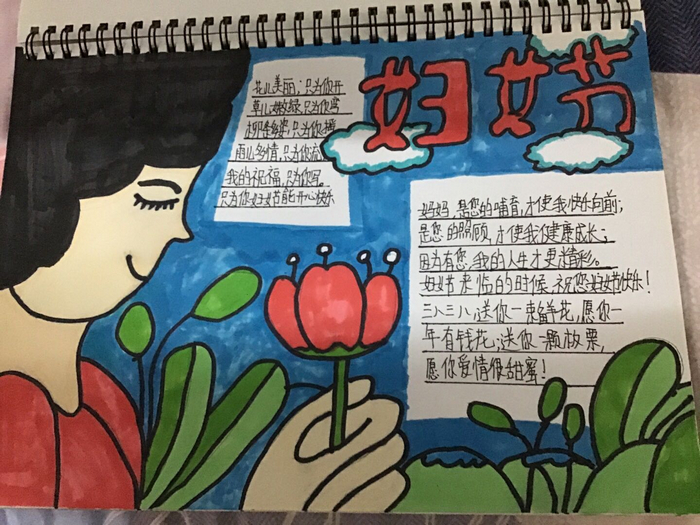 妇女节
花儿美丽,只为你开
草儿嫩绿,只为你
柳条多姿,只为你
雨儿多情,只为你流
我的祝福,只为你写。
只为你妇女节能开心快乐
妈妈,是您的哺育,才使我快乐向前;
是您的照顾,才使我健康成长;
因为有您,我的人生才更精彩。
妇女节来临的时候,祝您妇女节快乐!
三八三八,送你一束鲜花,愿你一
年有钱花;送你一颗板栗,
愿你爱情很甜蜜!